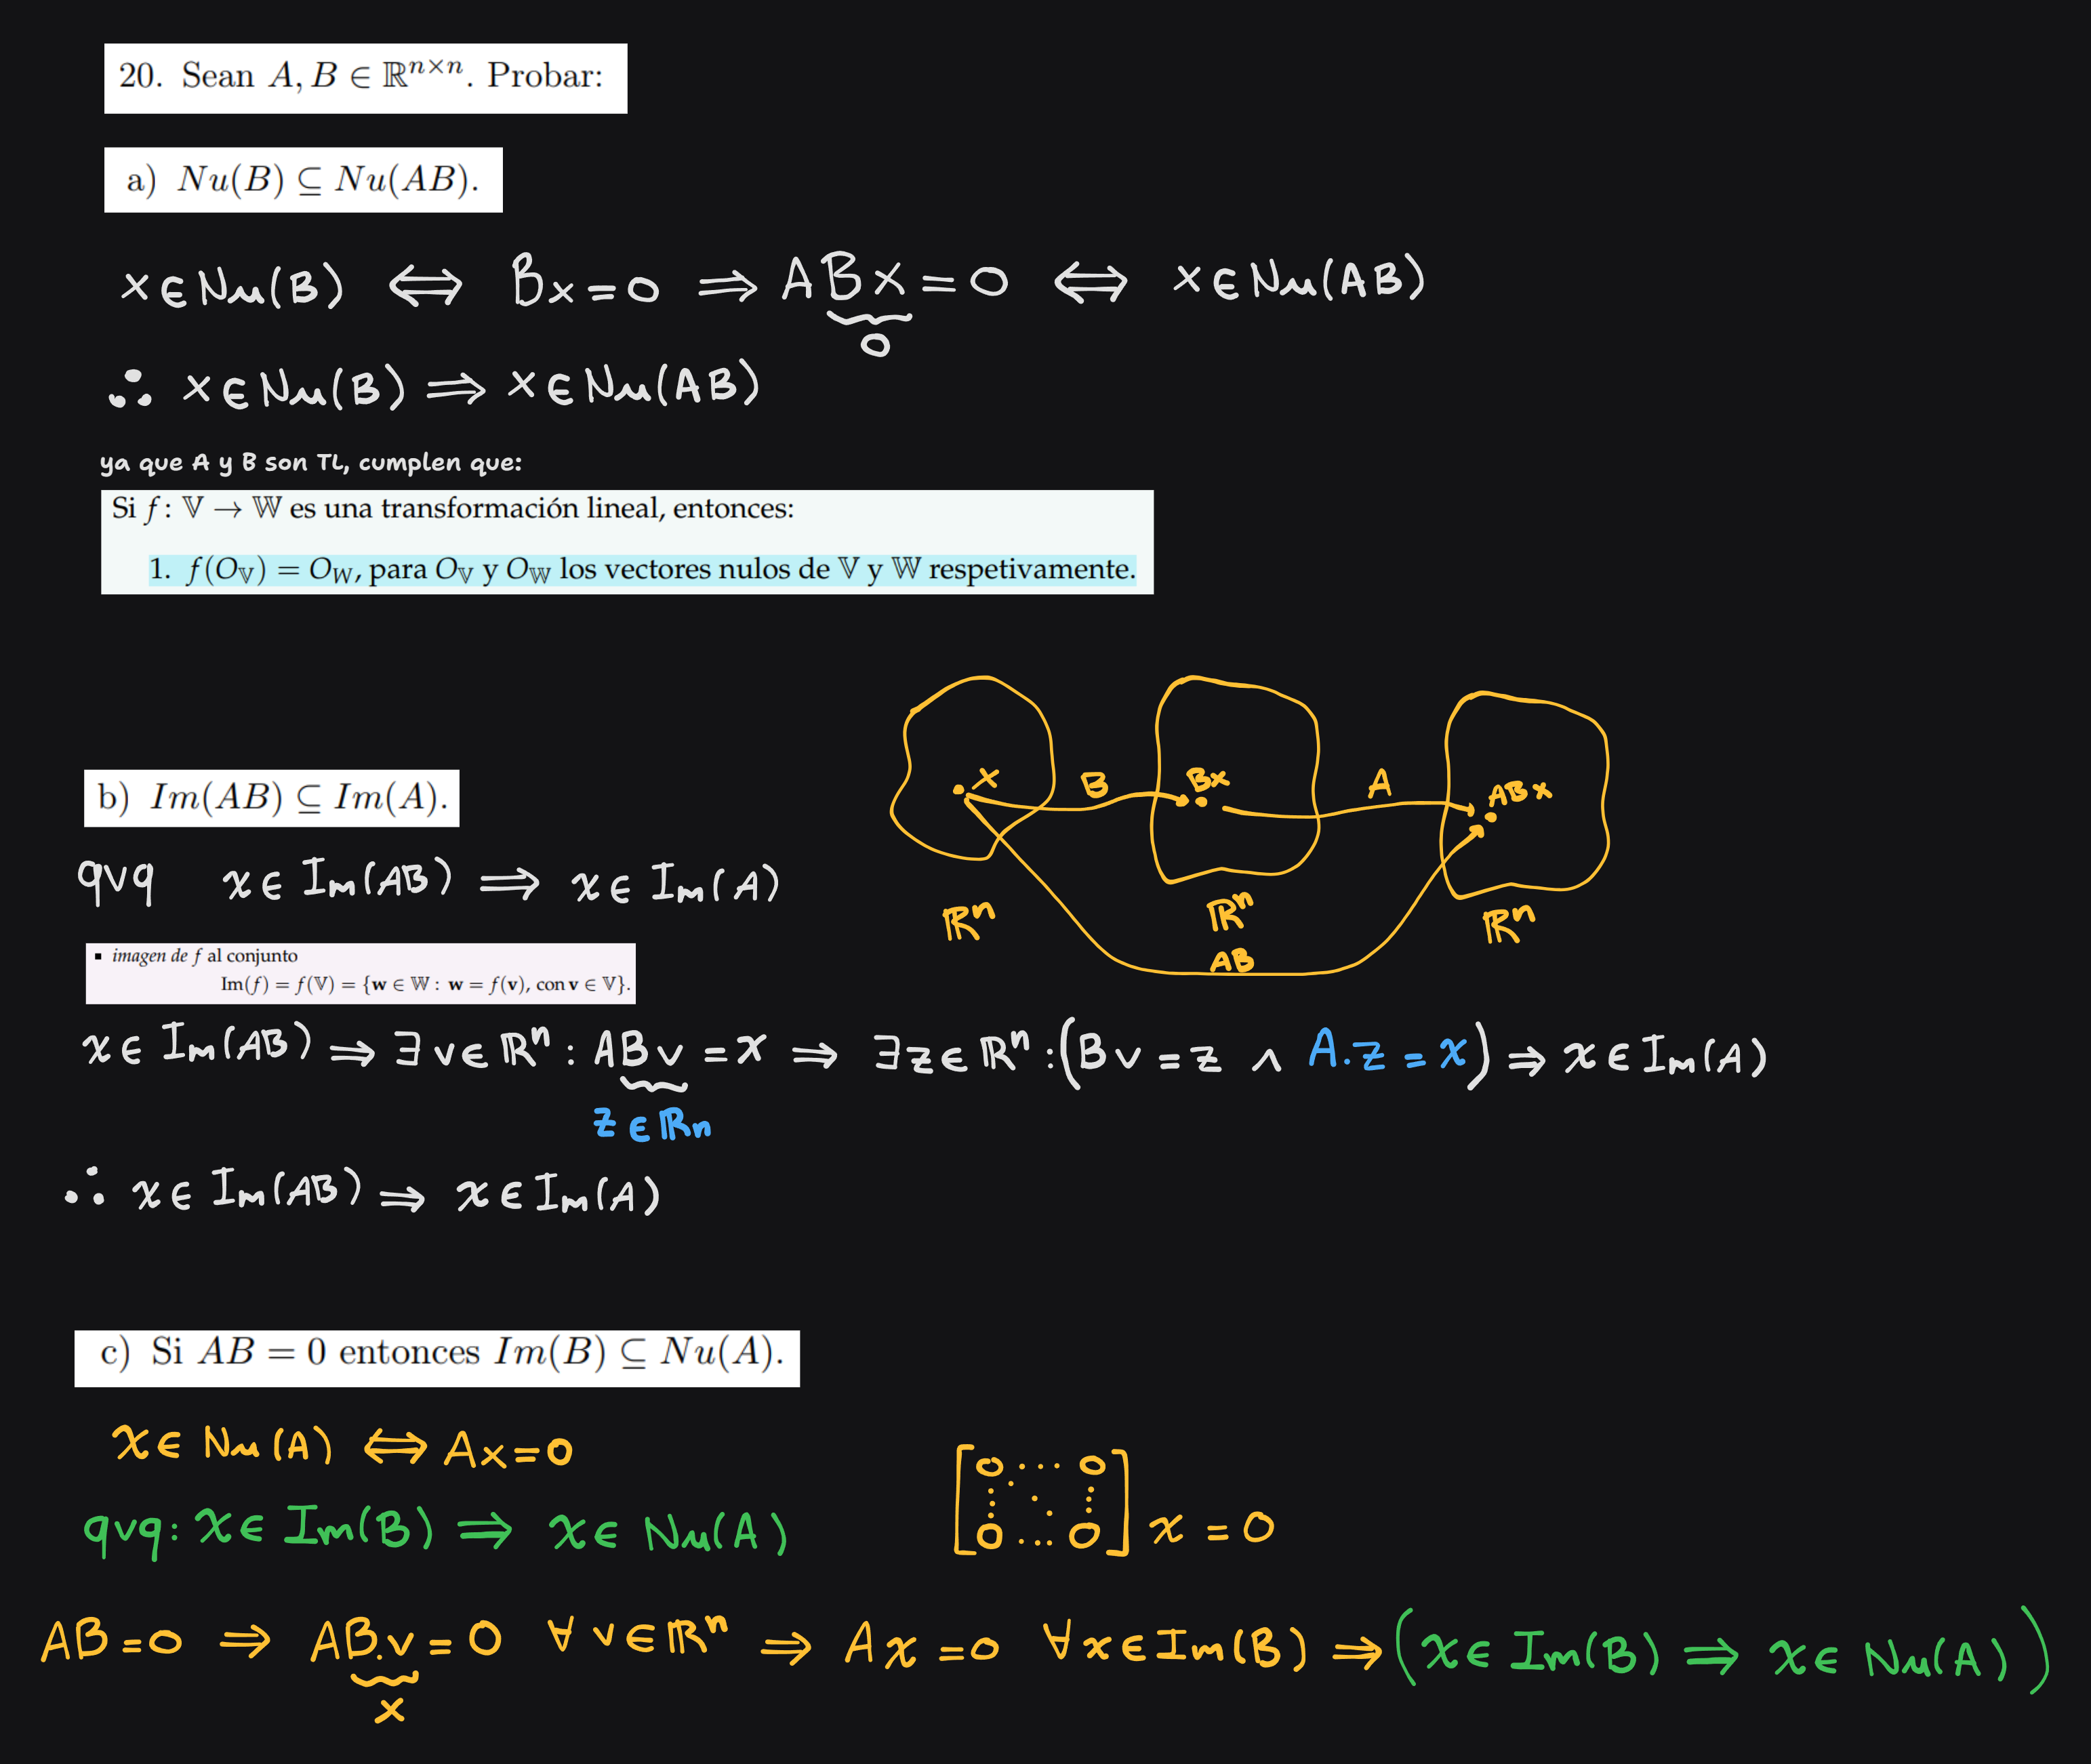 20. Sean A, B ∈ ℝⁿˣⁿ. Probar:
a) Nu(B) ⊆ Nu(AB).
x ∈ Nu(B) ⟺ Bx = 0 ⟹ ABx = 0 ⟺ x ∈ Nu(AB)
0
∴ x ∈ Nu(B) ⟹ x ∈ Nu(AB)
ya que A y B son TL, cumplen que:
Si f: 𝕍 → 𝕎 es una transformación lineal, entonces:
1. f(O_𝕍) = O_W, para O_𝕍 y O_𝕎 los vectores nulos de 𝕍 y 𝕎 respetivamente.
x B Bx A ABx
ℝⁿ ℝⁿ ℝⁿ
AB
b) Im(AB) ⊆ Im(A).
qvq x ∈ Im(AB) ⟹ x ∈ Im(A)
▪ imagen de f al conjunto
Im(f) = f(𝕍) = {w ∈ 𝕎 : w = f(v), con v ∈ 𝕍}.
x ∈ Im(AB) ⟹ ∃ v ∈ ℝⁿ : ABv = x ⟹ ∃ z ∈ ℝⁿ : (Bv = z ∧ A.z = x) ⟹ x ∈ Im(A)
z ∈ ℝn
∴ x ∈ Im(AB) ⟹ x ∈ Im(A)
c) Si AB = 0 entonces Im(B) ⊆ Nu(A).
x ∈ Nu(A) ⟺ Ax = 0
qvq: x ∈ Im(B) ⟹ x ∈ Nu(A)
[0 ··· 0
⋮ ⋱ ⋮
0 ... 0] x = 0
AB = 0 ⟹ AB.v = 0 ∀ v ∈ ℝⁿ ⟹ Ax = 0 ∀ x ∈ Im(B) ⟹ (x ∈ Im(B) ⟹ x ∈ Nu(A))
x